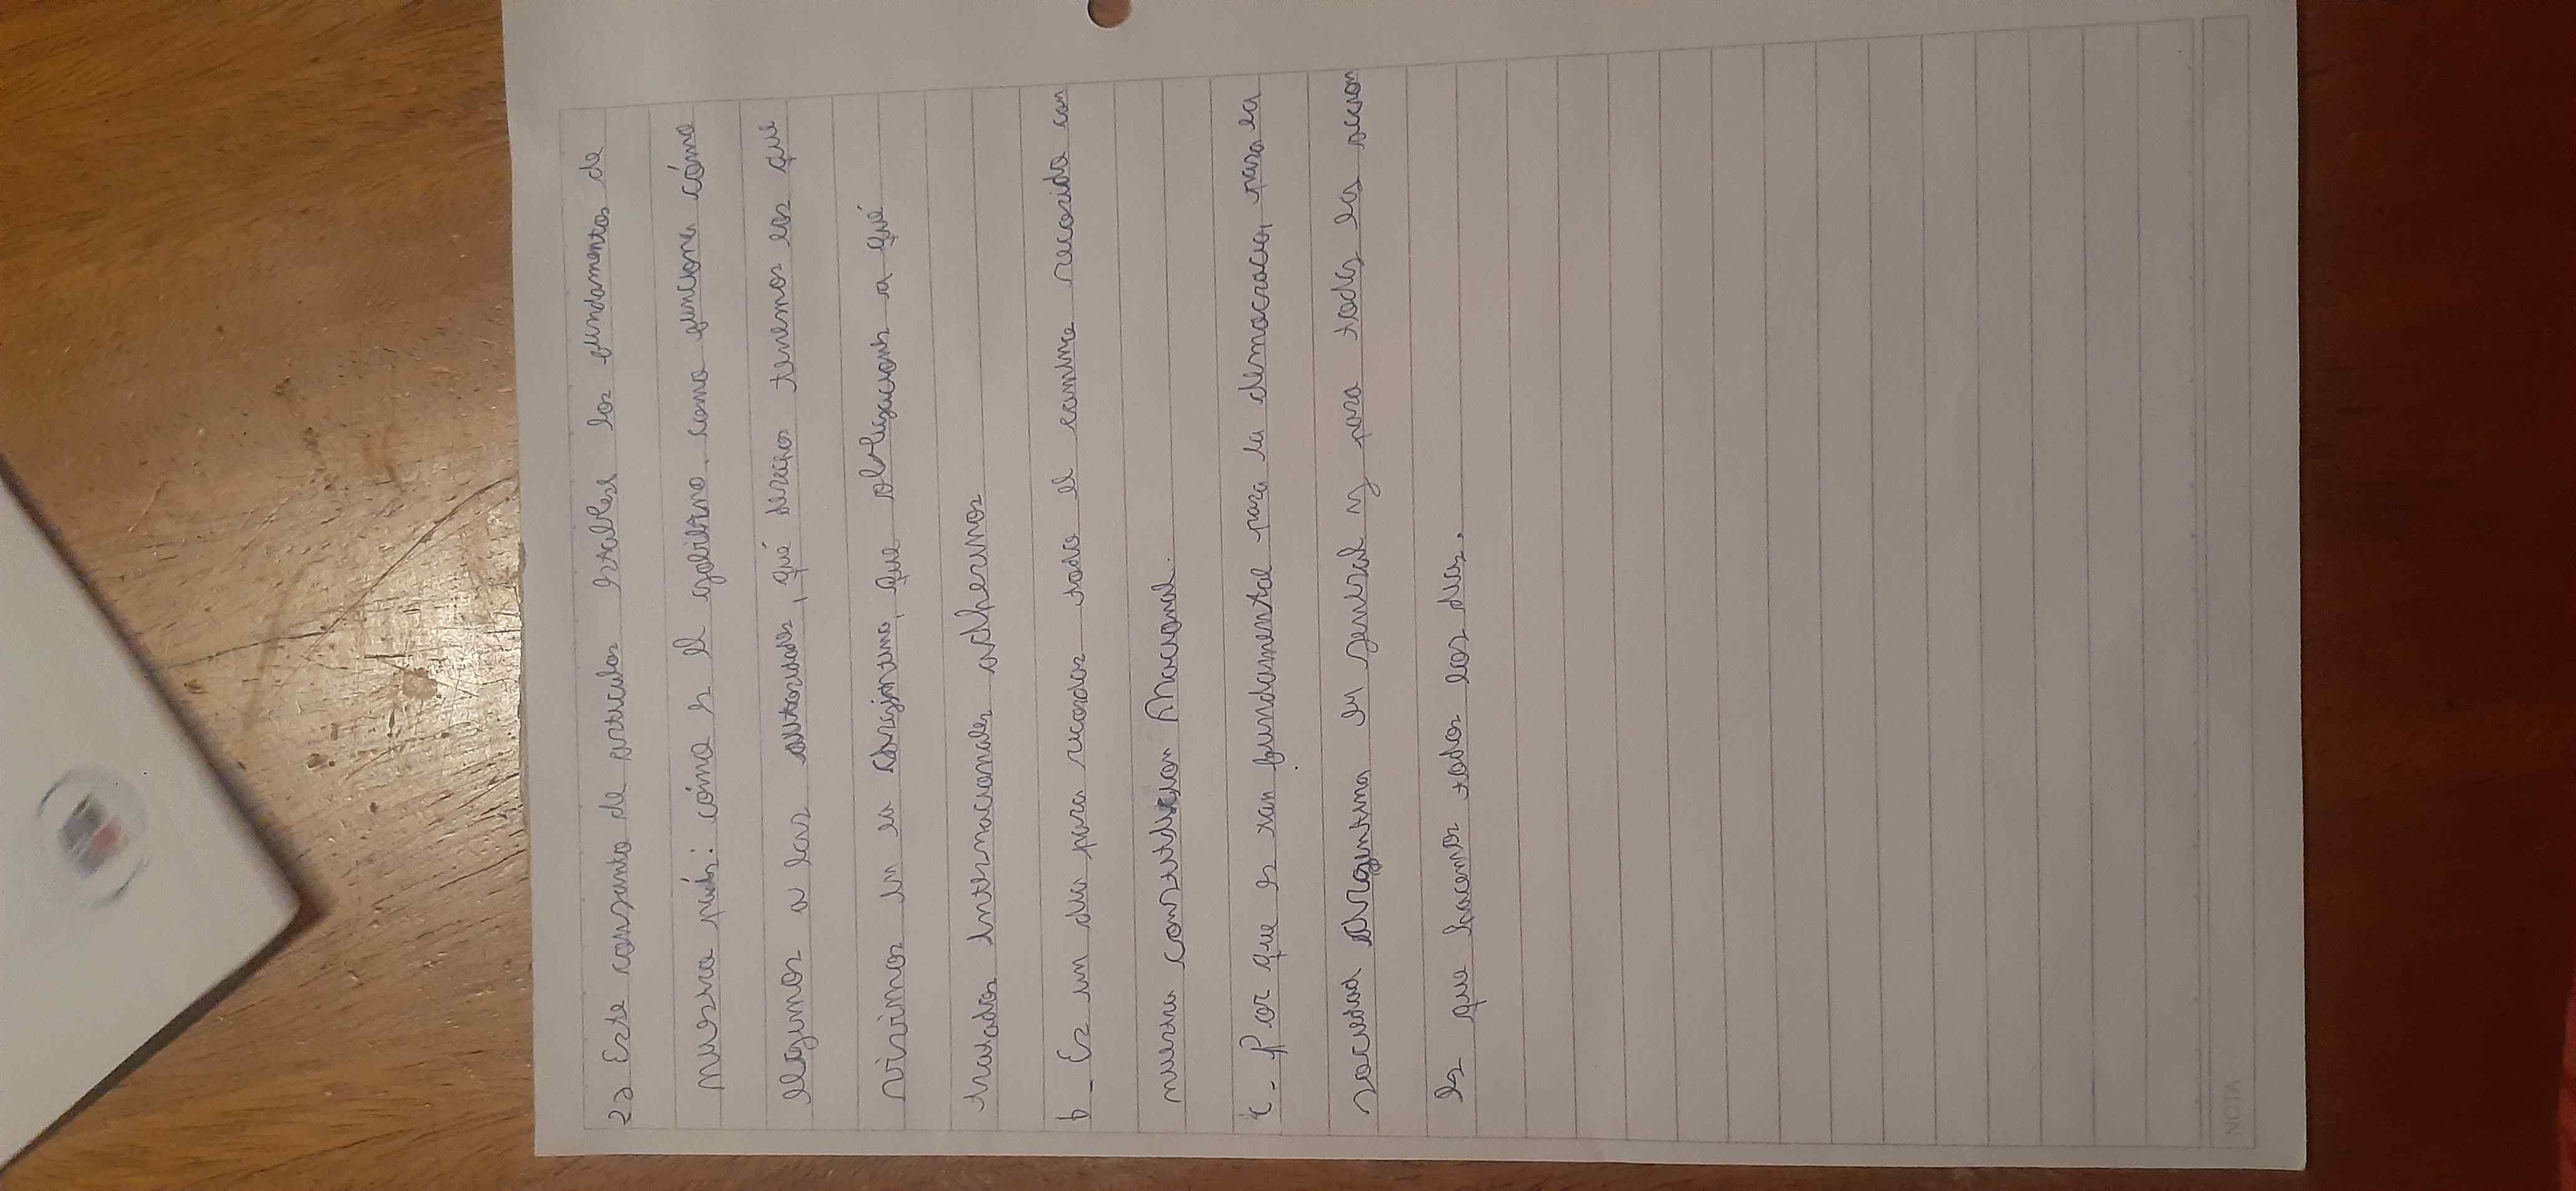 2a Este consunto de articulos establese los fundamentos de
nuestro país: cómo es el gobierno, como funciona cómo
elegimos a las autoridades, qué derechos tenemos los que
vivimos en la Argentina, que obligaciones a qué
tratados internacionales adherimos
b - Es un dia para recordar todo el camino recorido con
nuestra constitucion Nacional.
c - Por que es tan fundamental para la democracia, para la
sociedad Argentina en general y para todas las accion
es que hacemos todos los dias.
NOTA